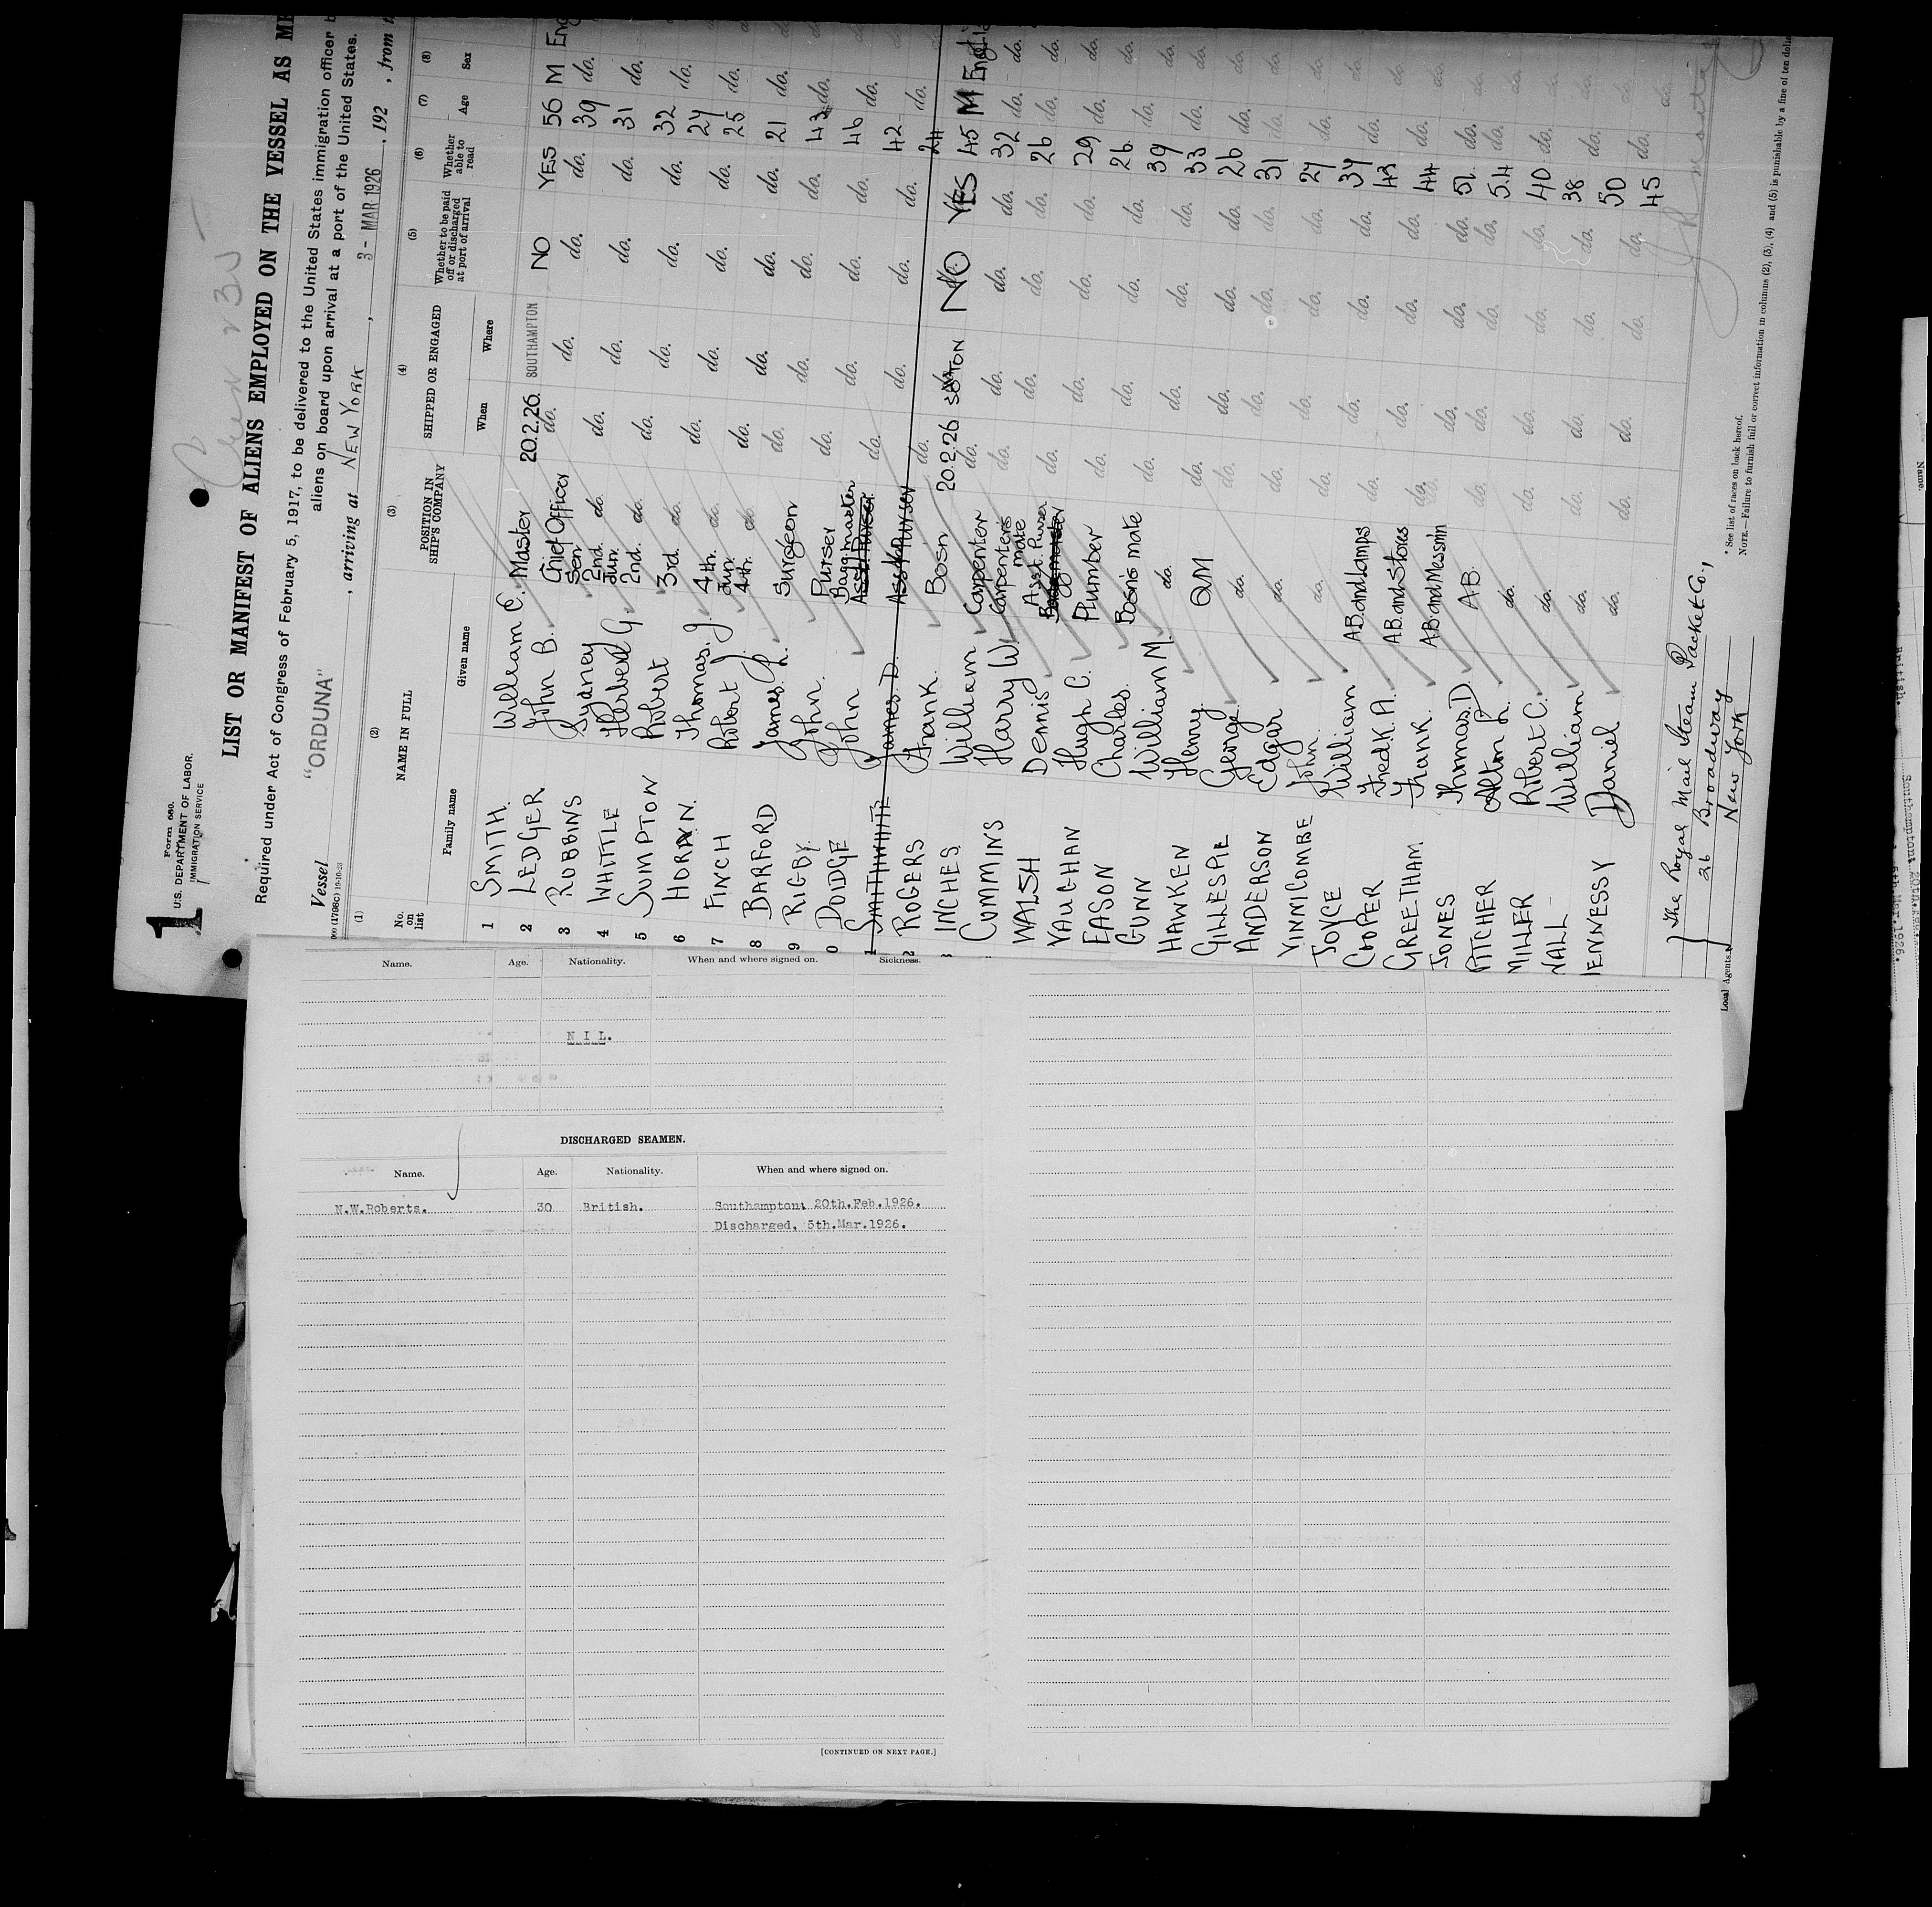 1
Form 680.
U.S. DEPARTMENT OF LABOR.
IMMIGRATION SERVICE
LIST OR MANIFEST OF ALIENS EMPLOYED ON THE VESSEL AS ME
Required under Act of Congress of February 5, 1917, to be delivered to the United States immigration officer b
aliens on board upon arrival at a port of the United States.
Vessel "ORDUNA" , arriving at NEW YORK , 3 - MAR 1926 , 192 , from t
(1) (2) (3) (4) (5) (6) (7) (8)
No. on list NAME IN FULL POSITION IN SHIP'S COMPANY SHIPPED OR ENGAGED Whether to be paid off or discharged at port of arrival Whether able to read Age Sex
Family name Given name When Where
1 SMITH William C. Master 20.2.26. SOUTHAMPTON NO YES 56 M Eng
2 LEDGER John B. Chief Officer do. do. do. do. 39 do.
3 ROBBINS Sydney Senr 2nd. do. do. do. do. 31 do.
4 WHITTLE Herbert G Junr. 2nd. do. do. do. do. do. 32 do.
5 SUMPTON Robert 3rd. do. do. do. do. do. 27 do.
6 HORAN. Thomas. J. 4th. do. do. do. do. 25 do.
7 FINCH Robert J. Jun. 4th. do. do. do. do. 21 do.
8 BARFORD James R. Surgeon do. do. do. do. 43 do.
9 RIGBY. John. Purser do. do. do. do. 46 do.
0 DODGE John Bagg. master Asst. Purser do. do. do. do. 42 do.
1 SMITHWHITE James D. Asst Purser do. 24
2 ROGERS Frank. Bosn 20.2.26 S&TON NO YES 45 M English
INCHES William Carpenter do. do. do. do. 32 do.
CUMMINS Harry W. Carpenter's mate do. do. do. do. 26 do.
WALSH Dennis Asst. Purser Bagg. master do. do. do. do. 29 do.
VAUGHAN Hugh C. Plumber do. do. do. do. 26. do.
EASON Charles. Bosn's mate do. do. do. do. 39 do.
GUNN William M. do. do. do. do. do. 33 do.
HAWKEN Henry QM do. do. do. do. 26 do.
GILLESPIE George do. do. do. do. do. 31 do.
ANDERSON Edgar do. do. do. do. do. 27 do.
VINNICOMBE John. do. do. do. do. do. 34 do.
JOYCE William A.B. and Lamps do. do. do. do. 43 do.
COOPER Fredk. A. A.B. and Stores do. do. do. do. 44 do.
GREETHAM Frank. A.B. and Messmn do. do. do. do. 51. do.
JONES Thomas. D. A.B. do. do. do. do. 54 do.
PITCHER Alton R. do. do. do. do. do. 40 do.
MILLER Robert C. do. do. do. do. do. 38 do.
WALL William do. do. do. do. do. 50 do.
ENNESSY Daniel do. do. do. do. do. 45 do.
Local Agents, The Royal Mail Steam Packet Co.,
26 Broadway
New York
* See list of races on back hereof.
NOTE.—Failure to furnish full or correct information in columns (2), (3), (4) and (5) is punishable by a fine of ten dolla
Name. Age. Nationality. When and where signed on. Sickness.
N I L.
DISCHARGED SEAMEN.
Name. Age. Nationality. When and where signed on.
N.W.Roberts. 30 British. Southampton: 20th.Feb.1926.
Discharged. 5th.Mar.1926.
[CONTINUED ON NEXT PAGE.]
Name.
British.
Southampton 20th.
5th.Mar.1926.